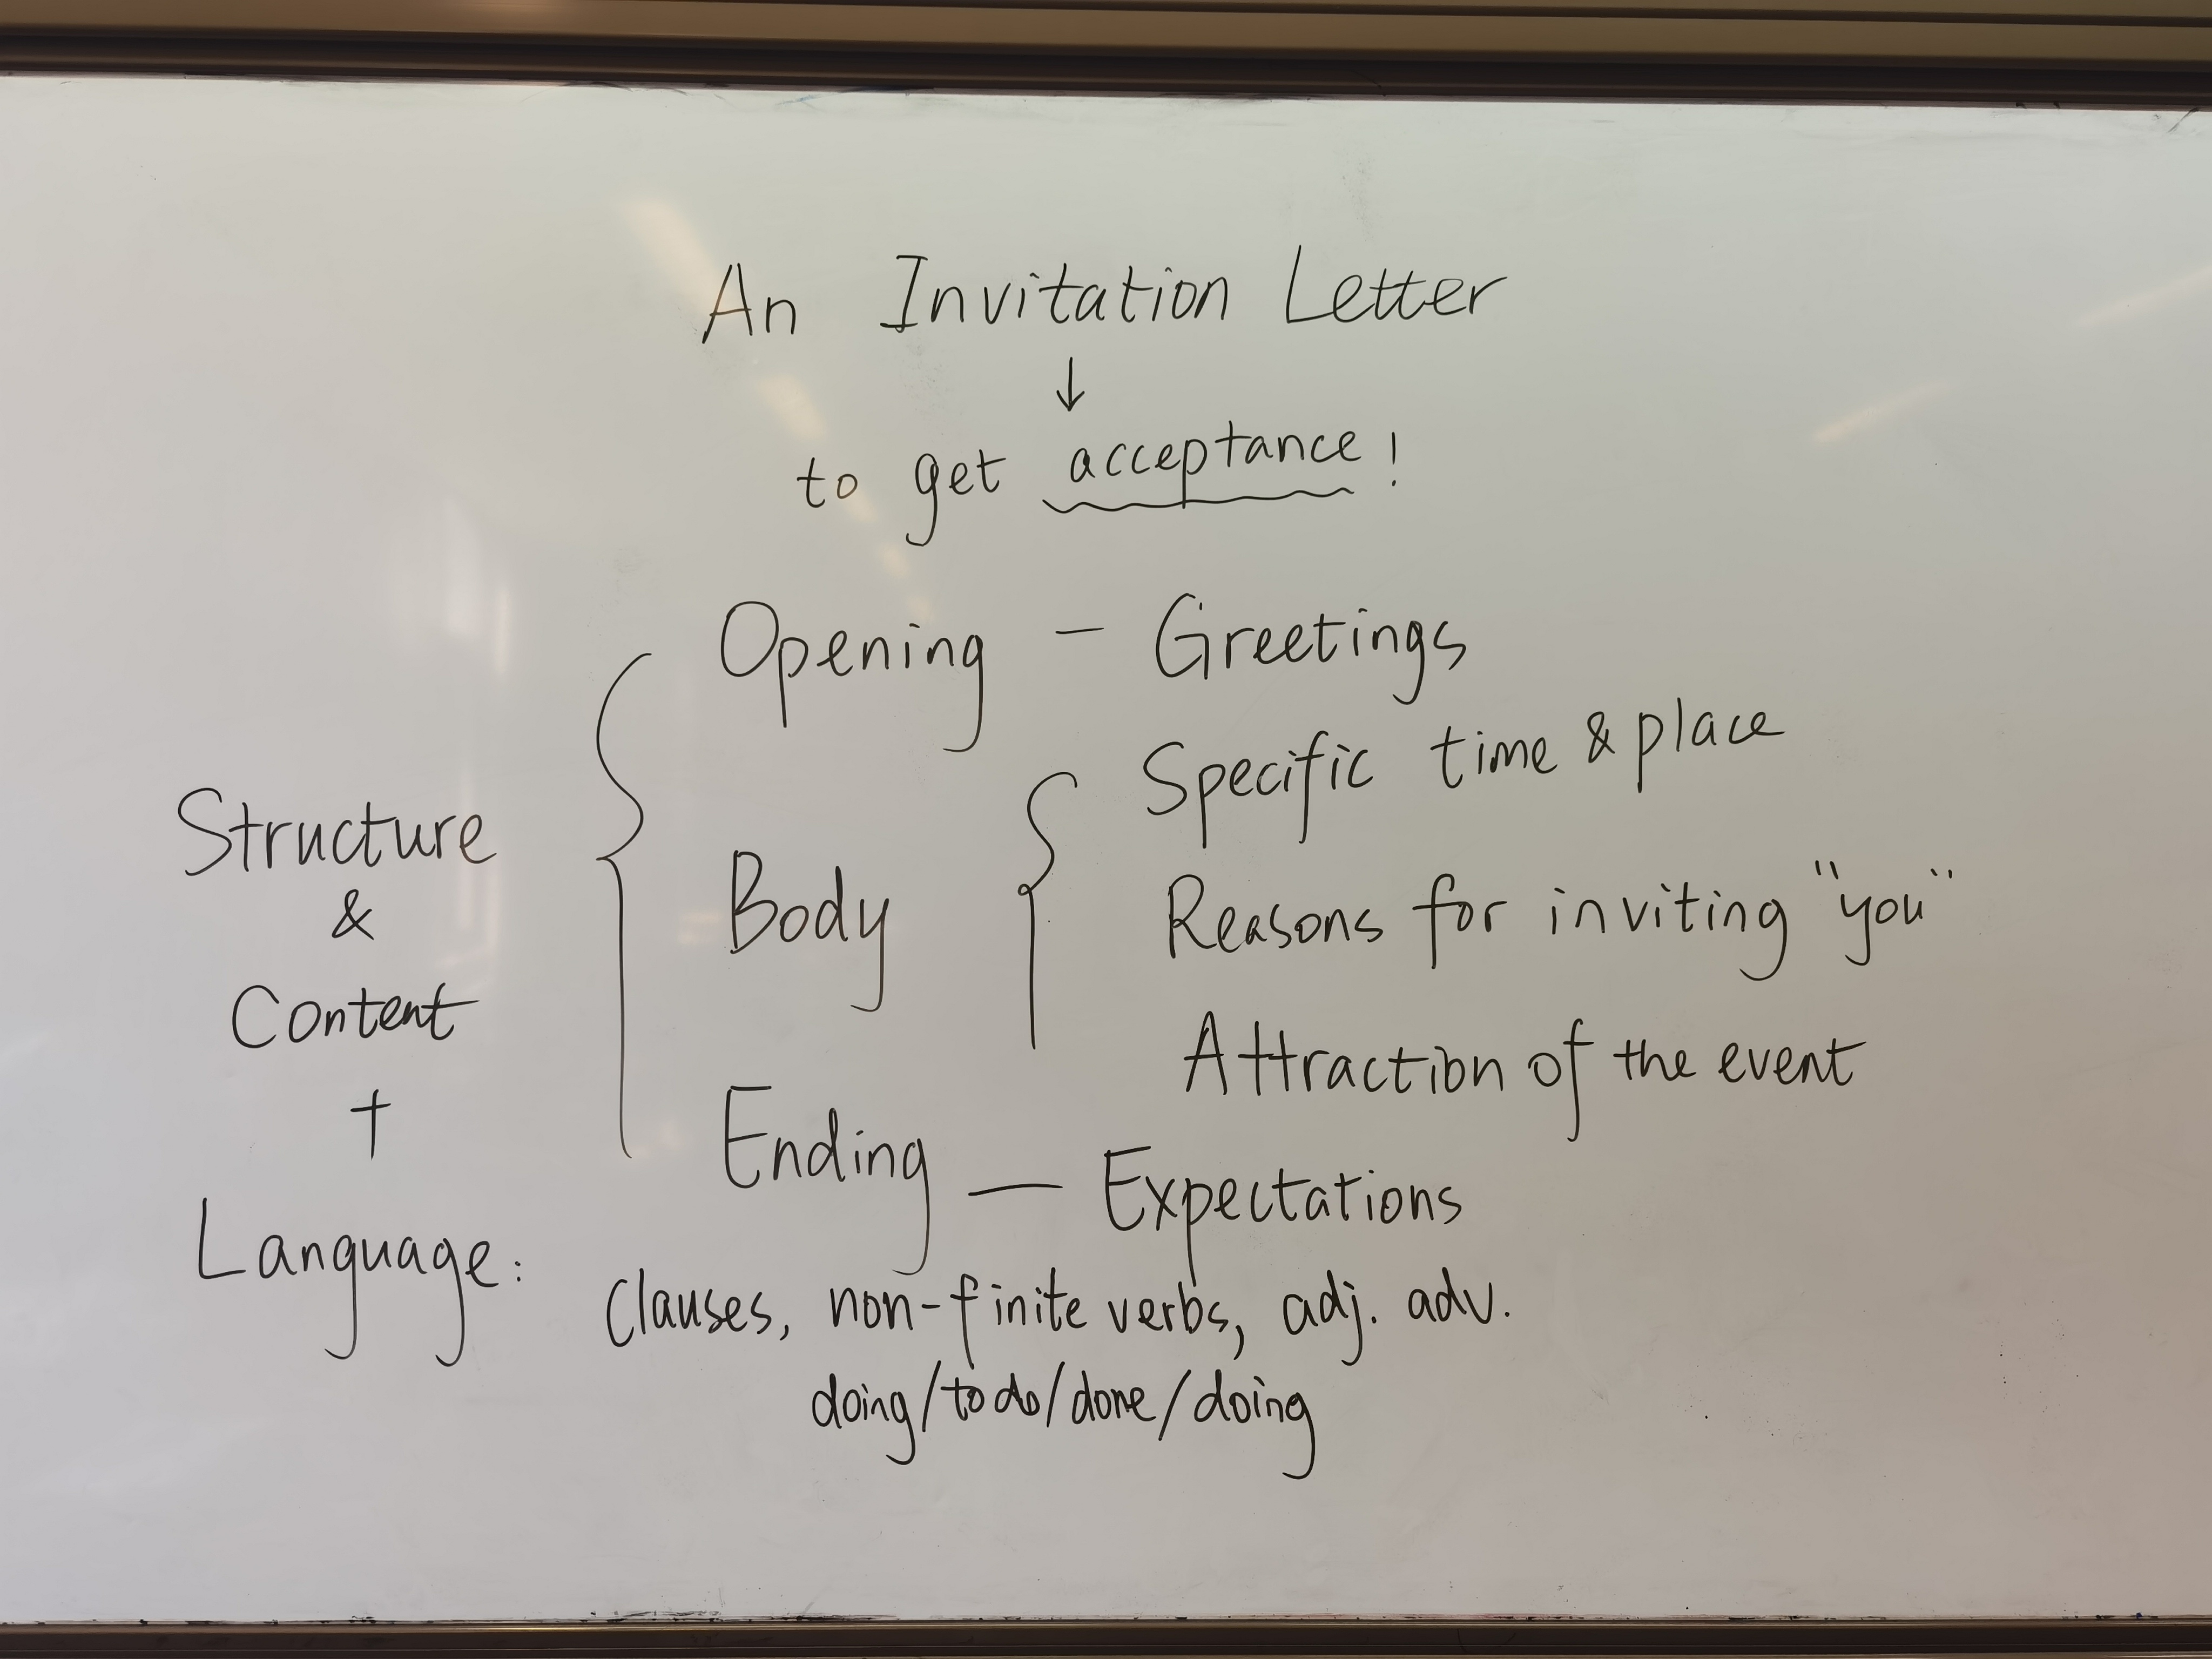 An Invitation Letter
↓
to get acceptance!
Opening — Greetings
Specific time & place
Structure
&
Content
Body
Reasons for inviting "you"
Attraction of the event
+
Ending — Expectations
Language:
Clauses, non-finite verbs, adj. adv.
doing/to do/done/doing